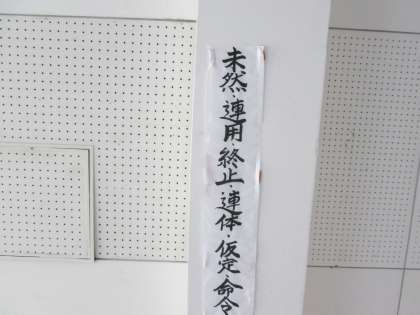 未然・連用・終止・連体・仮定・命令